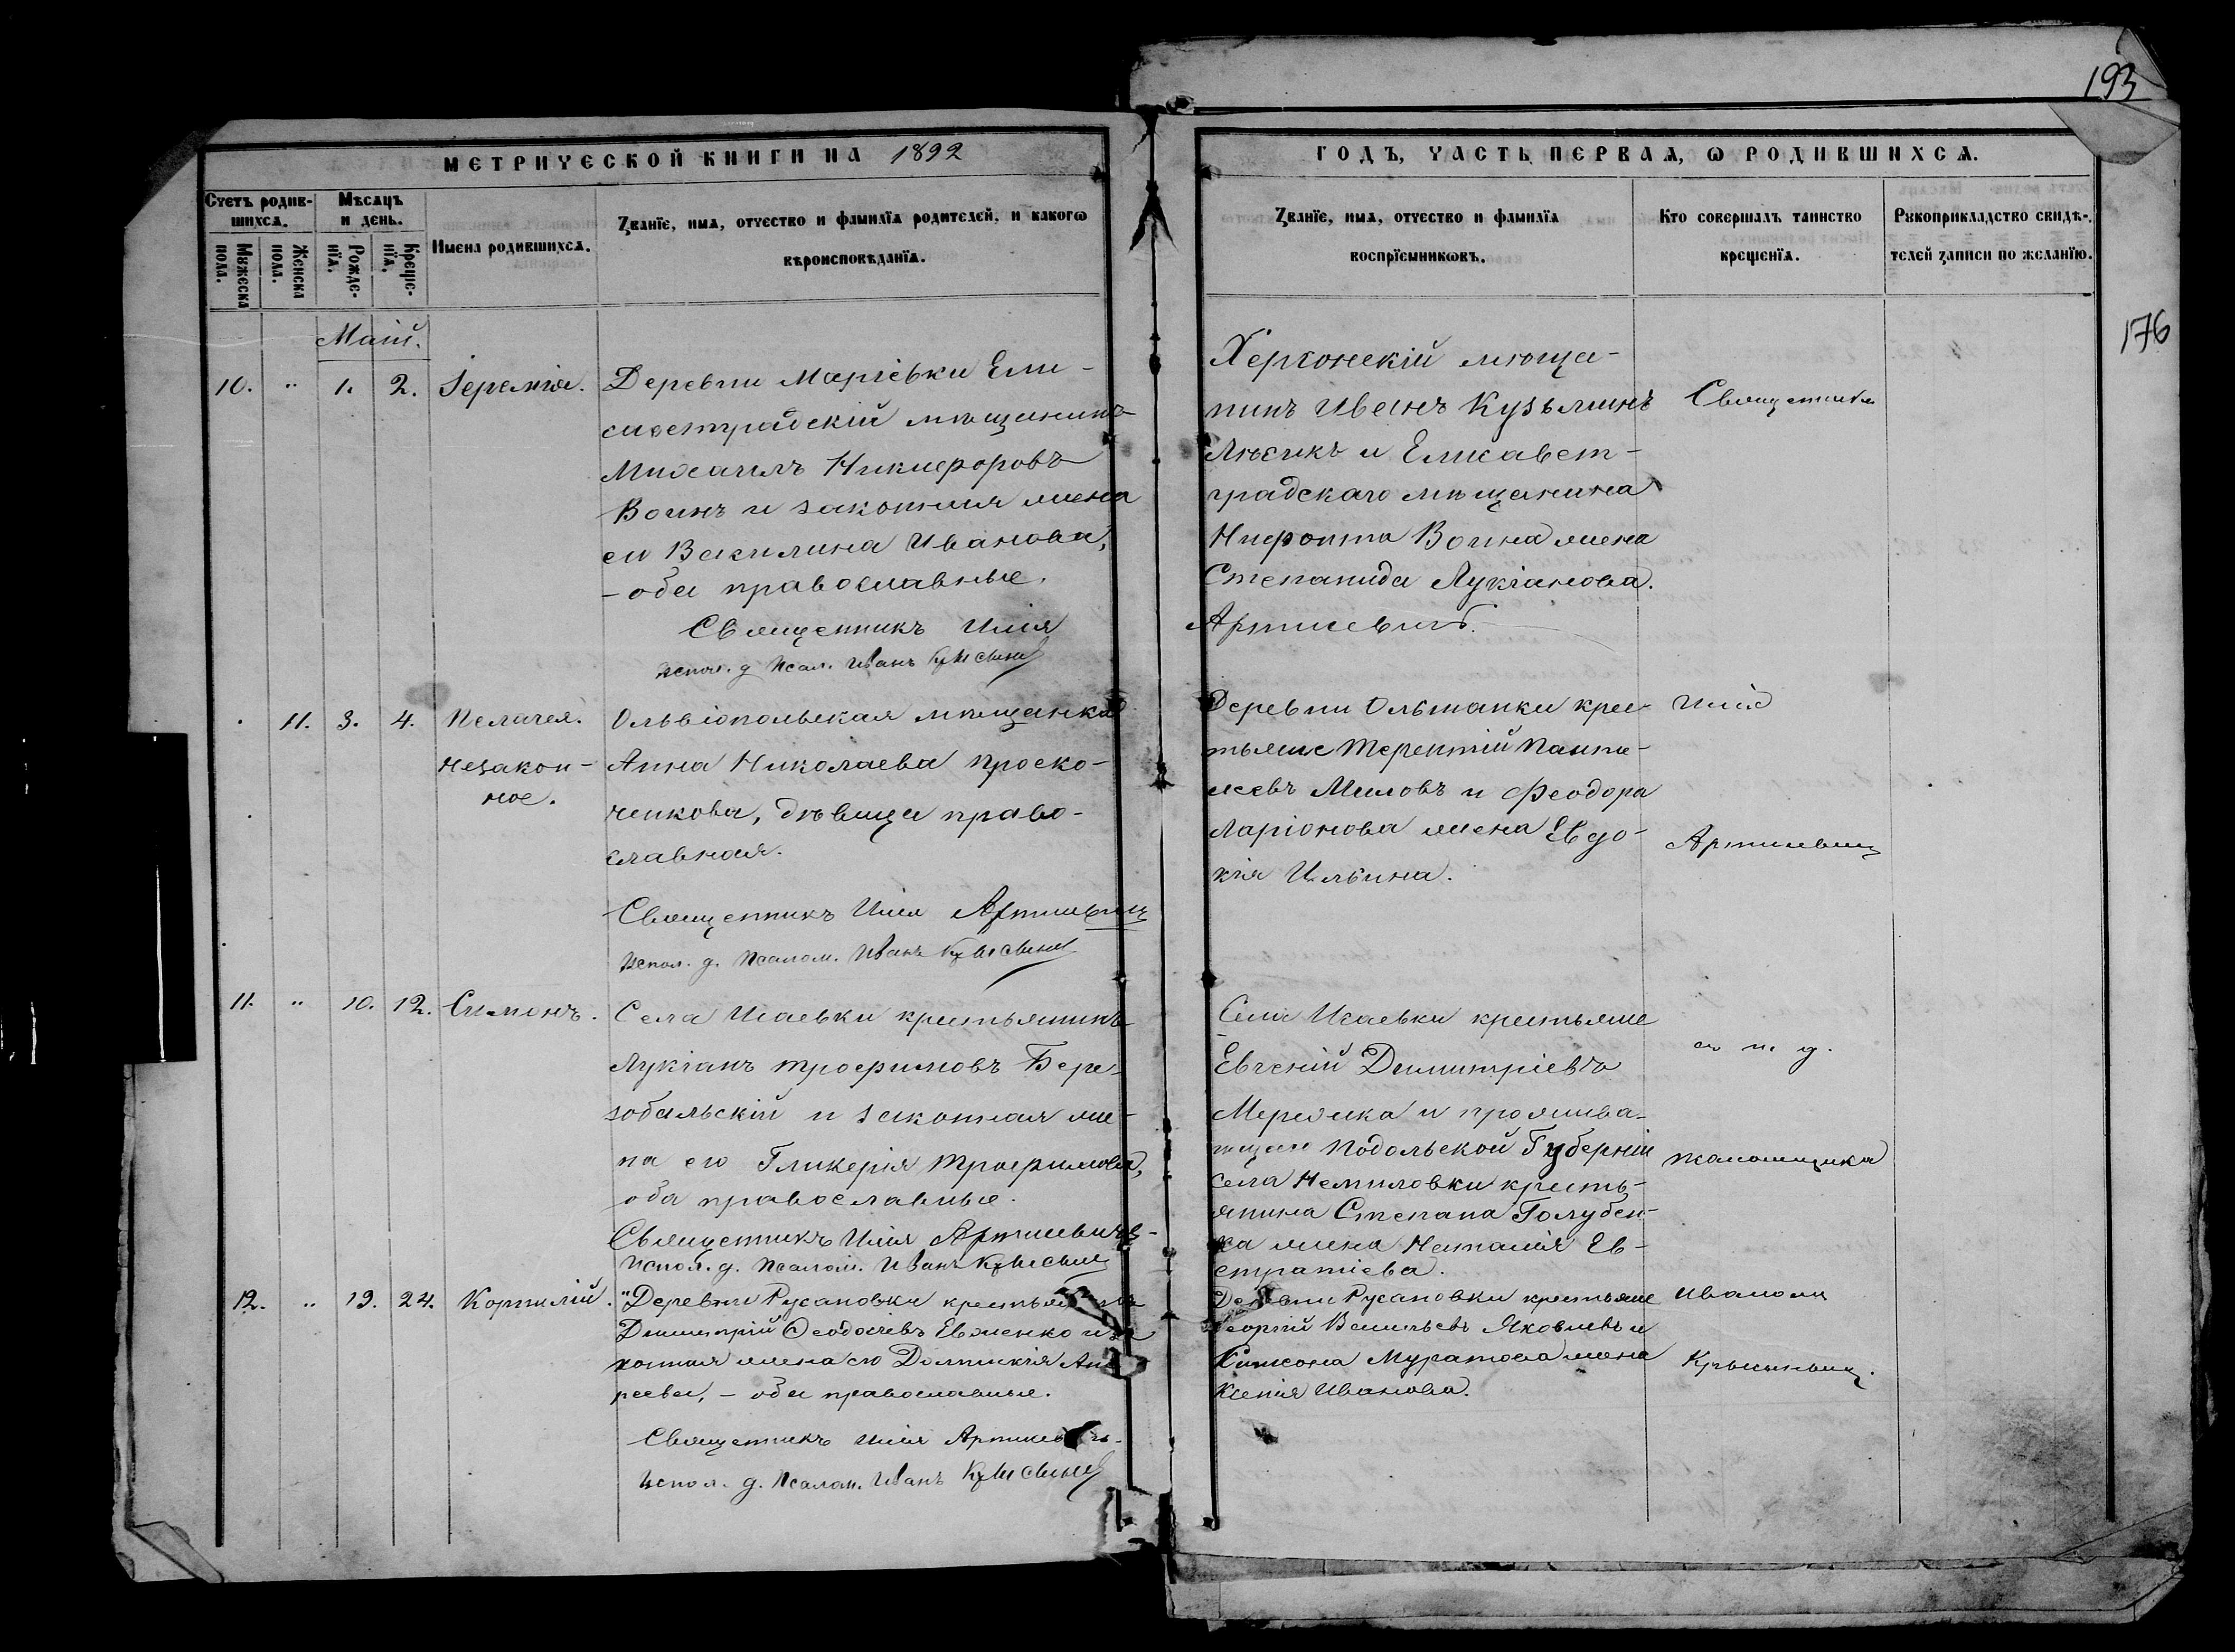 193
МЕТРИЧЕСКОЙ КНИГИ НА 1892
ГОДЪ, ЧАСТЬ ПЕРВАѦ, Ѡ РОДИВШИХСѦ.
Счетъ родив-
шихсѧ.
Мѹжеска
пола.
Женска
пола.
Мѣсѧцъ
и день.
Рожде-
нїѧ.
Креще-
нїѧ.
Имена родившихсѧ.
Ꙁванїе, имѧ, отчество и фамилїѧ родителей, и какогѡ
вѣроисповѣданїѧ.
Ꙁванїе, имѧ, отчество и фамилїѧ
воспрїемникѡвъ.
Кто совершалъ таинство
крещенїѧ.
Рѹкоприкладство свидѣ-
телей ꙁаписи по желанїю.
176
Маій.
10. " 1. 2. Іеремія.
Деревни Маріевки Ели-
саветградскій мѣщанинъ
Михаилъ Никифоровъ
Воинъ и законная жена
его Василина Иванова,
- оба православные.
Священникъ Илія
Испол. д. Псал. Иванъ
Херсонскій мѣща-
нинъ Иванъ Кузьминъ
и Елисавет-
градскаго мѣщанина
Воина жена
Степанида Лукіанова.
Артиевичъ.
Священникъ
11. 3. 4. Пелагея.
незакон-
ное.
Ольвіопольская мѣщанка
Анна Николаева Проско-
ченкова, дѣвица право-
славная.
Священникъ Илія
Испол. д. Псалом. Иванъ
Деревни Ольшанки крес-
тьяне Терентій Панте-
леевъ Миловъ и Феодора
Ларіонова жена Евдо-
кія Ильина.
Илія
11. " 10. 12. Симонъ.
Села Исаевки крестьянинъ
Лукіанъ Трофимовъ Бере-
зовскій и законная же-
на его Гликерія Трофимова,
оба православные.
Священникъ Илія
Испол. д. Псалом. Иванъ
Села Исаевки крестьяне
Евгеній Димитріевъ
Мережка и прожива-
ющаго Подольской Губерніи
села Немиловки кресть-
янина Степана Голубен-
ка жена Наталія Ев-
стратіева.
съ и. д.
псаломщика
12. " 19. 24. Корнилій.
Деревни Русановки
Димитрій Феодосіевъ Евженко и за-
конная жена его Домникія Анд-
реева, - оба православные.
Священникъ Илія
Испол. д. Псалом. Иванъ
Деревни Русановки крестьяне
Георгій Васильевъ Яковлевъ и
Муратова жена
Ксенія Иванова.
Иваномъ